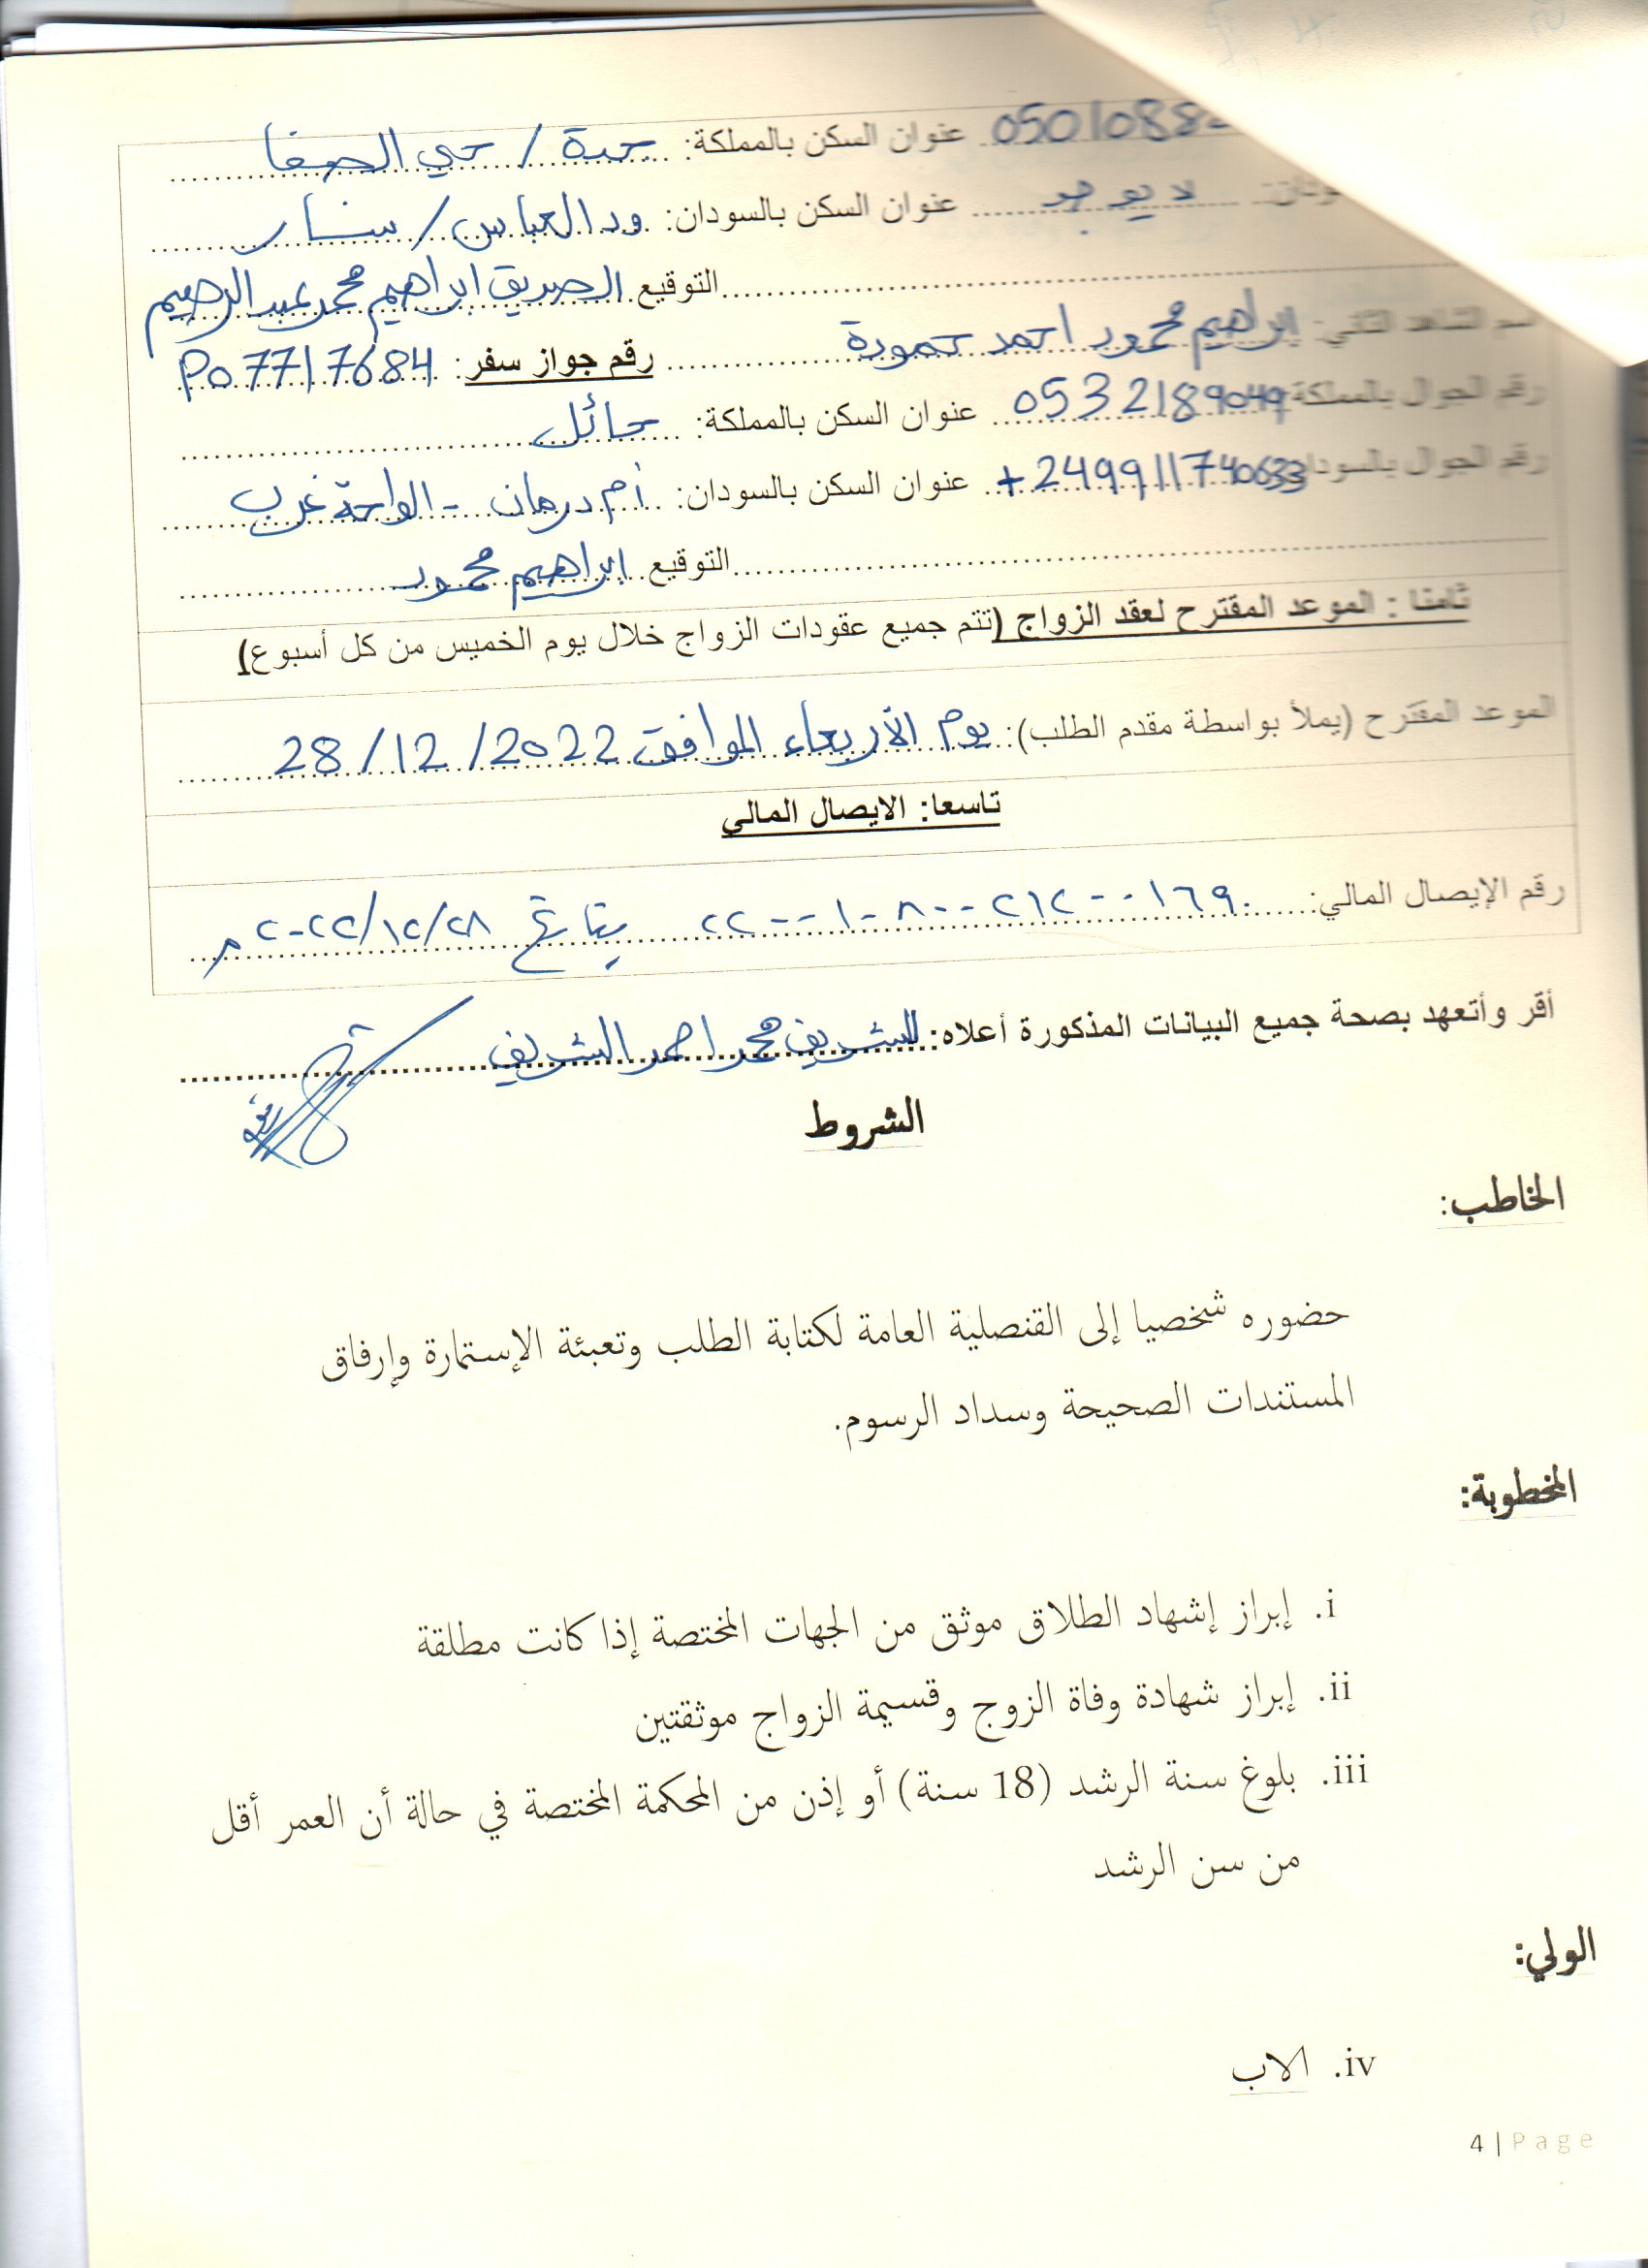 050108 عنوان السكن بالمملكة: جدة / حي الصفا
لا يوجد عنوان السكن بالسودان: ود العباس / سنار
التوقيع الصديق ابراهيم محمد عبد الرحيم
اسم الشاهد الثاني: ابراهيم محمود احمد حمودة رقم جواز سفر: P07717684
رقم الجوال بالمملكة 0532189049 عنوان السكن بالمملكة: حائل
رقم الجوال بالسودان +249911740633 عنوان السكن بالسودان: أم درمان - الواحة غرب
التوقيع ابراهيم محمود
ثامنا : الموعد المقترح لعقد الزواج (تتم جميع عقودات الزواج خلال يوم الخميس من كل أسبوع)
الموعد المقترح (يملأ بواسطة مقدم الطلب): يوم الأربعاء الموافق 28/12/2022
تاسعا: الايصال المالي
رقم الإيصال المالي: بتاريخ ٢٠٢٢/١٢/٢٨م
أقر وأتعهد بصحة جميع البيانات المذكورة أعلاه: الشريف محمد احمد الشريف
الشروط
الخاطب:
حضوره شخصيا إلى القنصلية العامة لكتابة الطلب وتعبئة الإستمارة وإرفاق
المستندات الصحيحة وسداد الرسوم.
المخطوبة:
i. إبراز إشهاد الطلاق موثق من الجهات المختصة إذا كانت مطلقة
ii. إبراز شهادة وفاة الزوج وقسيمة الزواج موثقتين
iii. بلوغ سنة الرشد (18 سنة) أو إذن من المحكمة المختصة في حالة أن العمر أقل
من سن الرشد
الولي:
iv. الاب
4 | Page